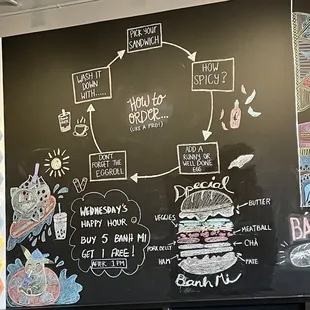 PICK YOUR
SANDWICH
HOW
SPICY?
ADD A
RUNNY OR
WELL DONE
EGG
DON'T
FORGET THE
EGGROLL
WASH IT
DOWN
WITH.....
HOW to
ORDER...
(LIKE A PRO!)
WEDNESDAY'S
HAPPY HOUR
BUY 5 BANH MI
GET 1 FREE!
AFTER 1PM
Special
VEGGIES
PORK BELLY
HAM
BUTTER
MEATBALL
CHẢ
PATE
Banh Mi
BÁ